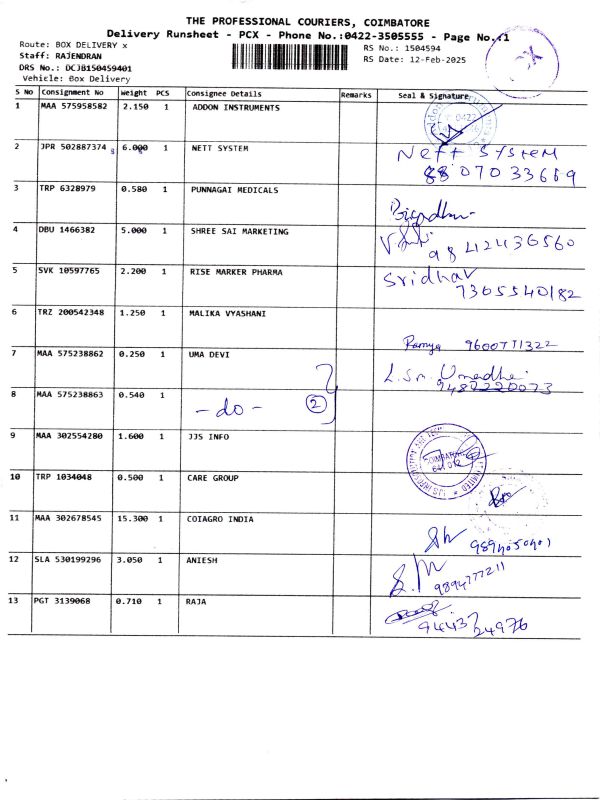 THE PROFESSIONAL COURIERS, COIMBATORE
Delivery Runsheet - PCX - Phone No.:0422-3505555 - Page No.
Route: BOX DELIVERY x
Staff: RAJENDRAN
DRS No.: DCJB150459401
Vehicle: Box Delivery
RS No.: 1504594
RS Date: 12-Feb-2025
S No Consignment No Weight PCS Consignee Details Remarks Seal & Signature
1 MAA 575958582 2.150 1 ADDON INSTRUMENTS
2 JPR 502887374 6.000 1 NETT SYSTEM Nett System
88 07033669
3 TRP 6328979 0.580 1 PUNNAGAI MEDICALS
4 DBU 1466382 5.000 1 SHREE SAI MARKETING 9842436560
5 SVK 10597765 2.200 1 RISE MARKER PHARMA Sridhar
7305540182
6 TRZ 200542348 1.250 1 MALIKA VYASHANI Ramya 9600771322
7 MAA 575238862 0.250 1 UMA DEVI
9487220073
8 MAA 575238863 0.540 1 - do - 2
9 MAA 302554280 1.600 1 JJS INFO
10 TRP 1034048 0.500 1 CARE GROUP
11 MAA 302678545 15.300 1 COIAGRO INDIA
12 SLA 530199296 3.050 1 ANIESH 9894777211
13 PGT 3139068 0.710 1 RAJA
94437 24976